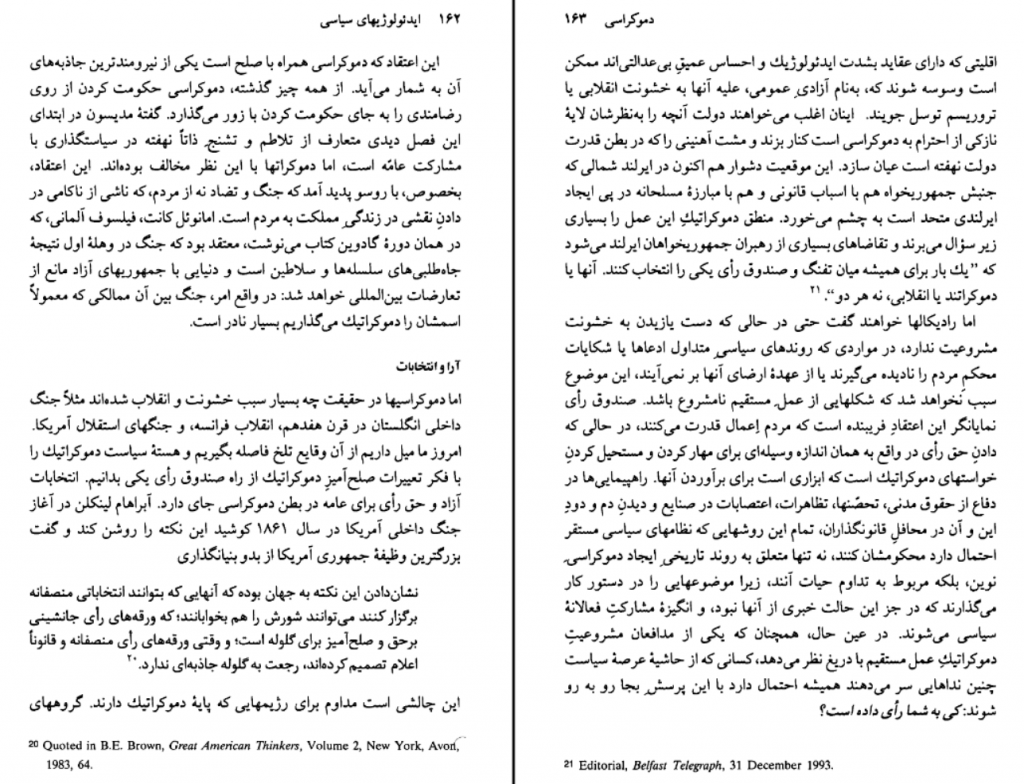 ۱۶۲ ایدئولوژیهای سیاسی
این اعتقاد که دموکراسی همراه با صلح است یکی از نیرومندترین جاذبه‌های
آن به شمار می‌آید. از همه چیز گذشته، دموکراسی حکومت کردن از روی
رضامندی را به جای حکومت کردن با زور می‌گذارد. گفتهٔ مدیسون در ابتدای
این فصل دیدی متعارف از تلاطم و تشنجِ ذاتاً نهفته در سیاستگذاری با
مشارکت عامّه است، اما دموکراتها با این نظر مخالف بوده‌اند. این اعتقاد،
بخصوص، با روسو پدید آمد که جنگ و تضاد نه از مردم، که ناشی از ناکامی در
دادنِ نقشی در زندگیِ مملکت به مردم است. امانوئل کانت، فیلسوف آلمانی، که
در همان دورهٔ گادوین کتاب می‌نوشت، معتقد بود که جنگ در وهلهٔ اول نتیجهٔ
جاه‌طلبی‌های سلسله‌ها و سلاطین است و دنیایی با جمهوریهای آزاد مانع از
تعارضات بین‌المللی خواهد شد: در واقع امر، جنگ بین آن ممالکی که معمولاً
اسمشان را دموکراتیك می‌گذاریم بسیار نادر است.
آرا و انتخابات
اما دموکراسیها در حقیقت چه بسیار سبب خشونت و انقلاب شده‌اند مثلاً جنگ
داخلی انگلستان در قرن هفدهم، انقلاب فرانسه، و جنگهای استقلال آمریکا.
امروز ما میل داریم از آن وقایع تلخ فاصله بگیریم و هستهٔ سیاست دموکراتیك را
با فکر تغییرات صلح‌آمیزِ دموکراتیك از راه صندوق رأی یکی بدانیم. انتخابات
آزاد و حق رأی برای عامه در بطن دموکراسی جای دارد. آبراهام لینکلن در آغاز
جنگ داخلی آمریکا در سال ۱۸۶۱ کوشید این نکته را روشن کند و گفت
بزرگترین وظیفهٔ جمهوری آمریکا از بدو بنیانگذاری
نشان‌دادن این نکته به جهان بوده که آنهایی که بتوانند انتخاباتی منصفانه
برگزار کنند می‌توانند شورش را هم بخوابانند؛ که ورقه‌های رأی جانشینی
برحق و صلح‌آمیز برای گلوله است؛ و وقتی ورقه‌های رأی منصفانه و قانوناً
اعلام تصمیم کرده‌اند، رجعت به گلوله جاذبه‌ای ندارد.۲۰
این چالشی است مداوم برای رژیمهایی که پایهٔ دموکراتیك دارند. گروههای
20 Quoted in B.E. Brown, Great American Thinkers, Volume 2, New York, Avon,
1983, 64.
دموکراسی ۱۶۳
اقلیتی که دارای عقاید بشدت ایدئولوژیك و احساس عمیقِ بی‌عدالتی‌اند ممکن
است وسوسه شوند که، به‌نام آزادیِ عمومی، علیه آنها به خشونت انقلابی یا
تروریسم توسل جویند. اینان اغلب می‌خواهند دولت آنچه را به‌نظرشان لایهٔ
نازکی از احترام به دموکراسی است کنار بزند و مشت آهنینی را که در بطن قدرت
دولت نهفته است عیان سازد. این موقعیت دشوار هم اکنون در ایرلند شمالی که
جنبش جمهوریخواه هم با اسباب قانونی و هم با مبارزهٔ مسلحانه در پی ایجاد
ایرلندی متحد است به چشم می‌خورد. منطق دموکراتیكِ این عمل را بسیاری
زیر سؤال می‌برند و تقاضاهای بسیاری از رهبران جمهوریخواهان ایرلند می‌شود
که ”یك بار برای همیشه میان تفنگ و صندوق رأی یکی را انتخاب کنند. آنها یا
دموکراتند یا انقلابی، نه هر دو“.۲۱
اما رادیکالها خواهند گفت حتی در حالی که دست یازیدن به خشونت
مشروعیت ندارد، در مواردی که روندهای سیاسیِ متداول ادعاها یا شکایات
محکمِ مردم را نادیده می‌گیرند یا از عهدهٔ ارضای آنها بر نمی‌آیند، این موضوع
سبب نخواهد شد که شکلهایی از عملِ مستقیم نامشروع باشد. صندوق رأی
نمایانگر این اعتقادِ فریبنده است که مردم اِعمال قدرت می‌کنند، در حالی که
دادنِ حق رأی در واقع به همان اندازه وسیله‌ای برای مهار کردن و مستحیل کردنِ
خواستهای دموکراتیك است که ابزاری است برای برآوردن آنها. راهپیمایی‌ها در
دفاع از حقوق مدنی، تحصّنها، تظاهرات، اعتصابات در صنایع و دیدنِ دم و دودِ
این و آن در محافلِ قانونگذاران، تمام این روشهایی که نظامهای سیاسی مستقر
احتمال دارد محکومشان کنند، نه تنها متعلق به روند تاریخیِ ایجاد دموکراسیِ
نوین، بلکه مربوط به تداوم حیات آنند، زیرا موضوعهایی را در دستور کار
می‌گذارند که در جز این حالت خبری از آنها نبود، و انگیزهٔ مشارکتِ فعالانهٔ
سیاسی می‌شوند. در عین حال، همچنان که یکی از مدافعان مشروعیتِ
دموکراتیكِ عمل مستقیم با دریغ نظر می‌دهد، کسانی که از حاشیهٔ عرصهٔ سیاست
چنین نداهایی سر می‌دهند همیشه احتمال دارد با این پرسشِ بجا رو به رو
شوند: کی به شما رأی داده است؟
21 Editorial, Belfast Telegraph, 31 December 1993.